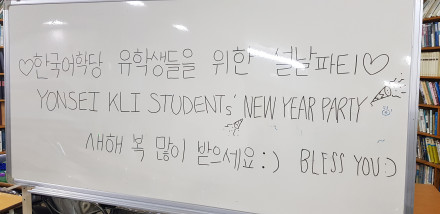 ♡한국어학당 유학생들을 위한 설날파티♡
YONSEI KLI STUDENTs' NEW YEAR PARTY
새해 복 많이 받으세요:) BLESS YOU:)